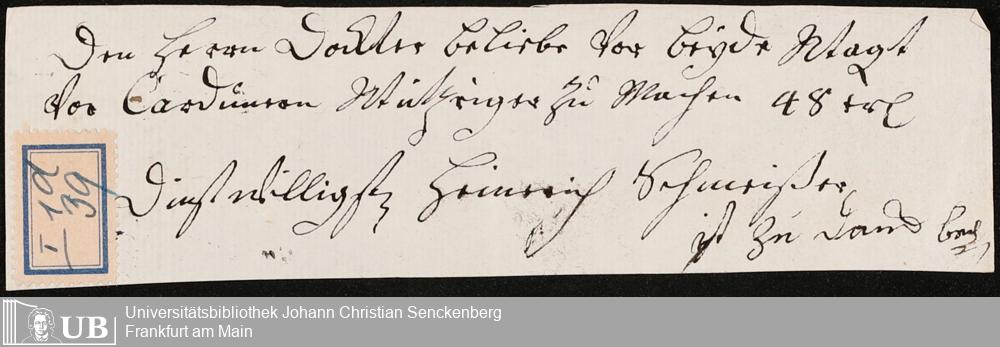 Den Herrn Docktter beliebe Vor beyde Magt
Vor Zu Machen 48 xrl
Dinstwilligst Heinrich Schmeißer
ist zu danck
I 19
39
UB
Universitätsbibliothek Johann Christian Senckenberg
Frankfurt am Main